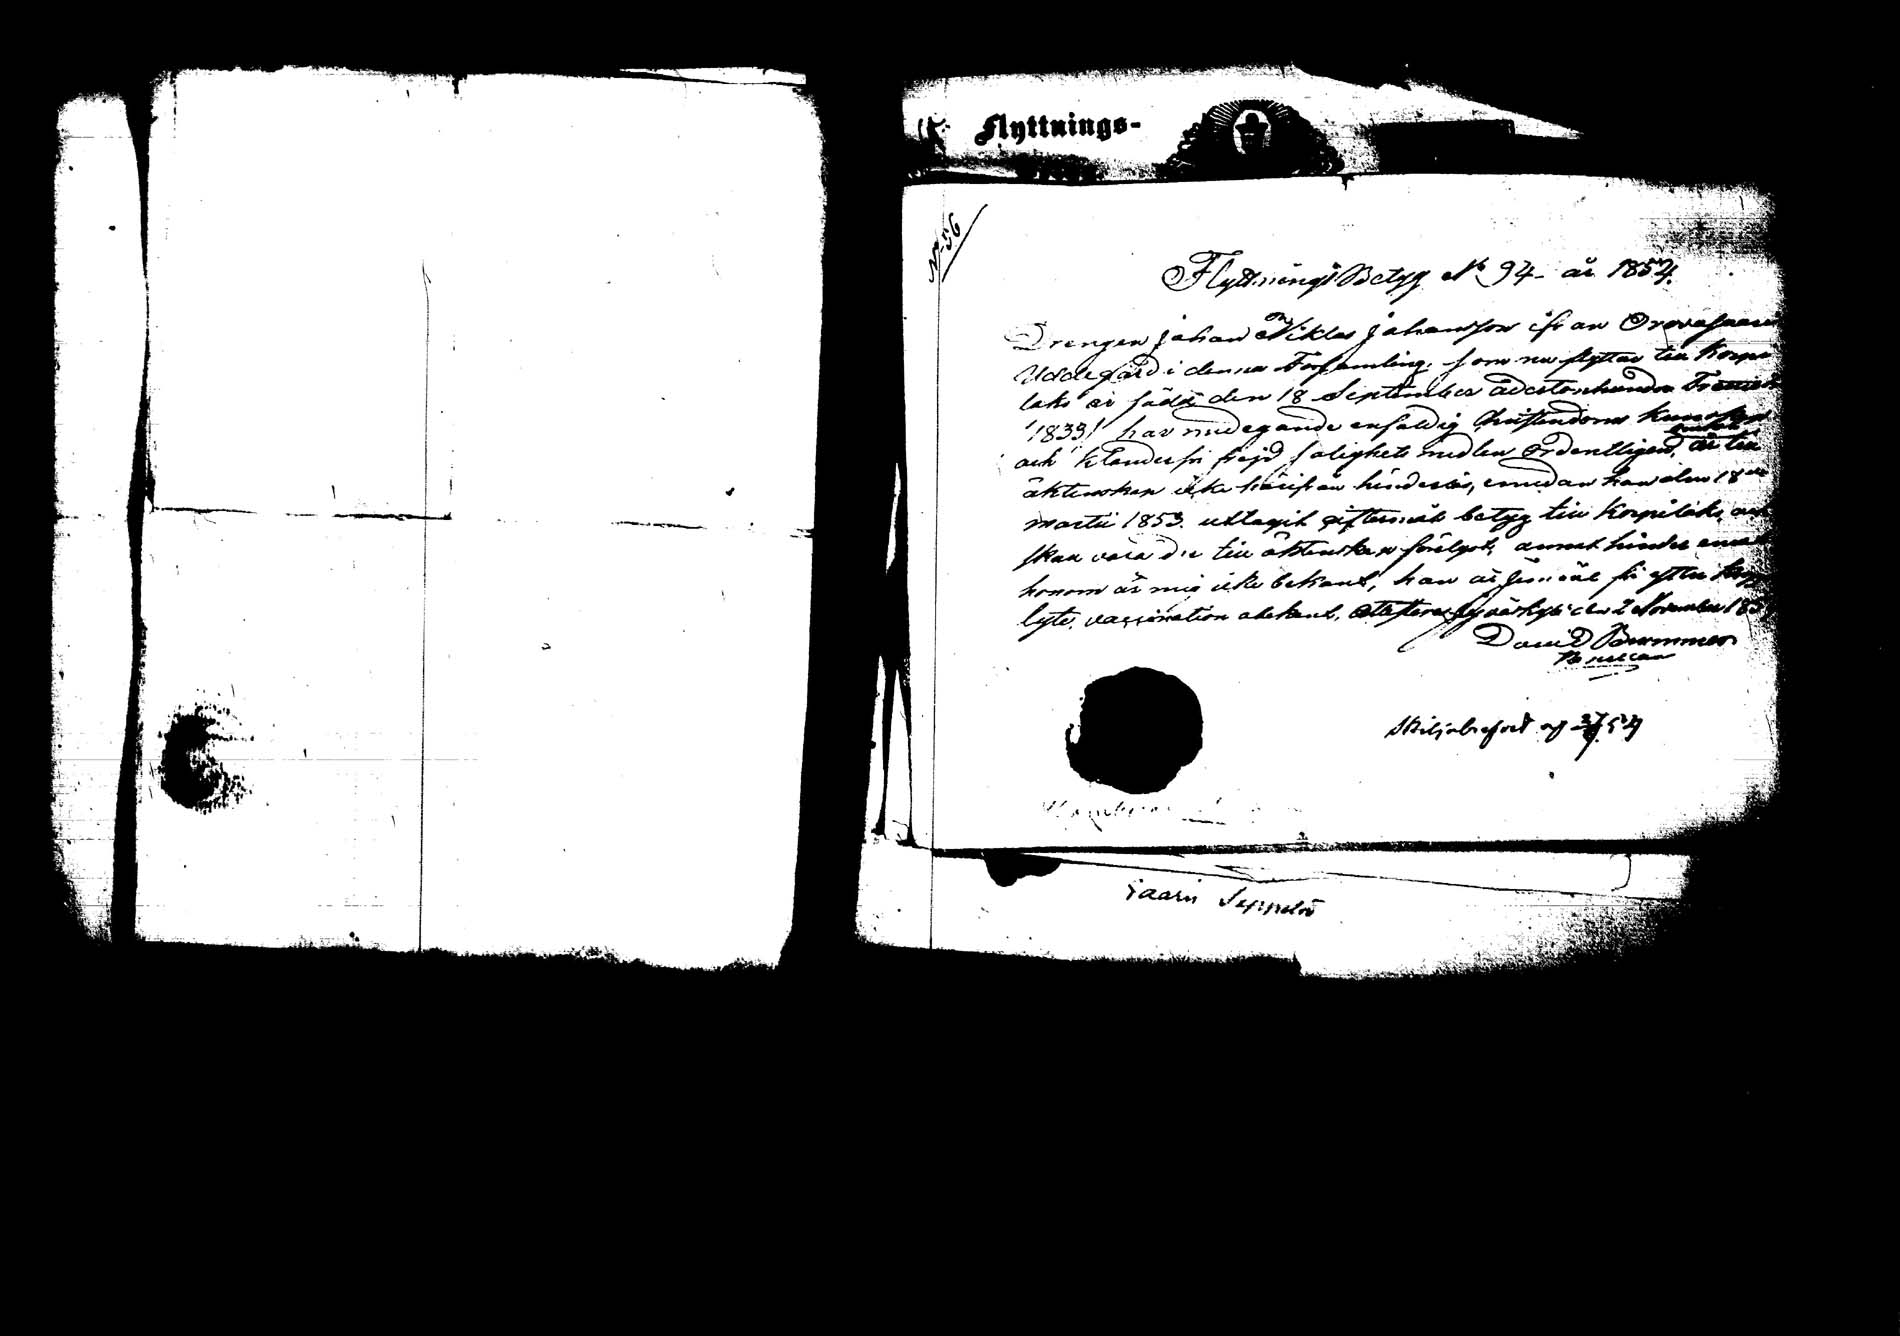 Flyttnings-
No 56
Flyttnings Betyg No 94 år 1854.
Drengen Johan Niklas Johansson ifrån Orovasaari
Uddegård i denna Församling, som nu flyttar till Korpi
laks är född den 18 September adertonhundra Trettiotre
/1833/ har medegande enfaldig Christendoms kunskap
och klanderfri frejd salighets medlen ordentligen, är till
äktenskap icke härifrån hinderlös, emedan han den 18
martii 1853 uttagit giftermåls betyg till Korpilaks, och
skall vara der till äktenskap förelyst, annat hinder emot
honom är mig icke bekant, han är jemväl fri efter kopp
lyte, vaccination obekant, attesterar den 2 November 185
David
af 54
Saari Seppelä